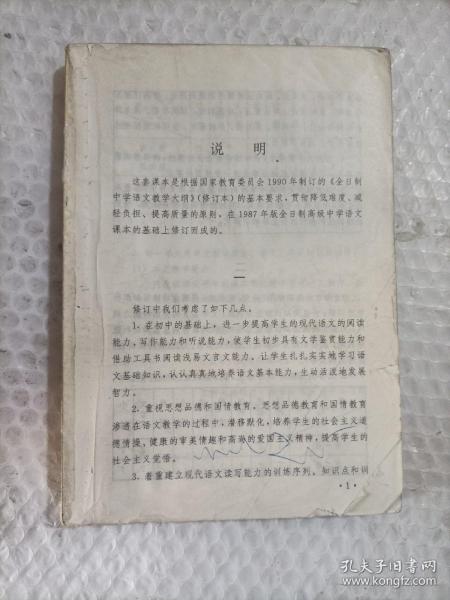 说 明
一
这套课本是根据国家教育委员会1990年制订的《全日制
中学语文教学大纲》(修订本)的基本要求,贯彻降低难度、减
轻负担、提高质量的原则,在1987年版全日制高级中学语文
课本的基础上修订而成的。
二
修订中我们考虑了如下几点。
1.在初中的基础上,进一步提高学生的现代语文的阅读
能力、写作能力和听说能力,使学生初步具有文学鉴赏能力和
借助工具书阅读浅易文言文能力。让学生扎扎实实地学习语
文基础知识,认认真真地培养语文基本能力,生动活泼地发展
智力。
2.重视思想品德和国情教育。思想品德教育和国情教育
渗透在语文教学的过程中,潜移默化,培养学生的社会主义道
德情操、健康的审美情趣和高尚的爱国主义精神,提高学生的
社会主义觉悟。
3.着重建立现代语文读写能力的训练序列。知识点和训
·1·
孔夫子旧书网
www.kongfz.com